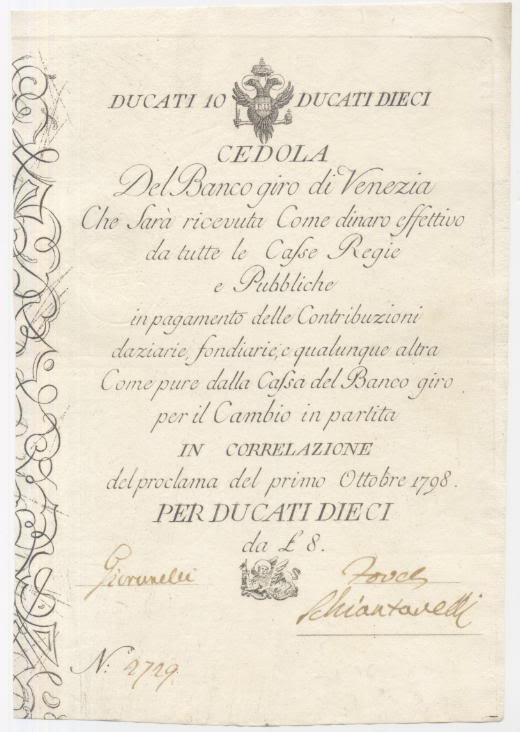 DUCATI 10 DUCATI DIECI
CEDOLA
Del Banco giro di Venezia
Che Sarà ricevuta Come dinaro effettivo
da tutte le Casse Regie
e Pubbliche
in pagamento delle Contribuzioni
daziarie, fondiarie, e qualunque altra
Come pure dalla Cassa del Banco giro
per il Cambio in partita
IN CORRELAZIONE
del proclama del primo Ottobre 1798.
PER DUCATI DIECI
da £ 8.
Schiantarelli
N: 2729.